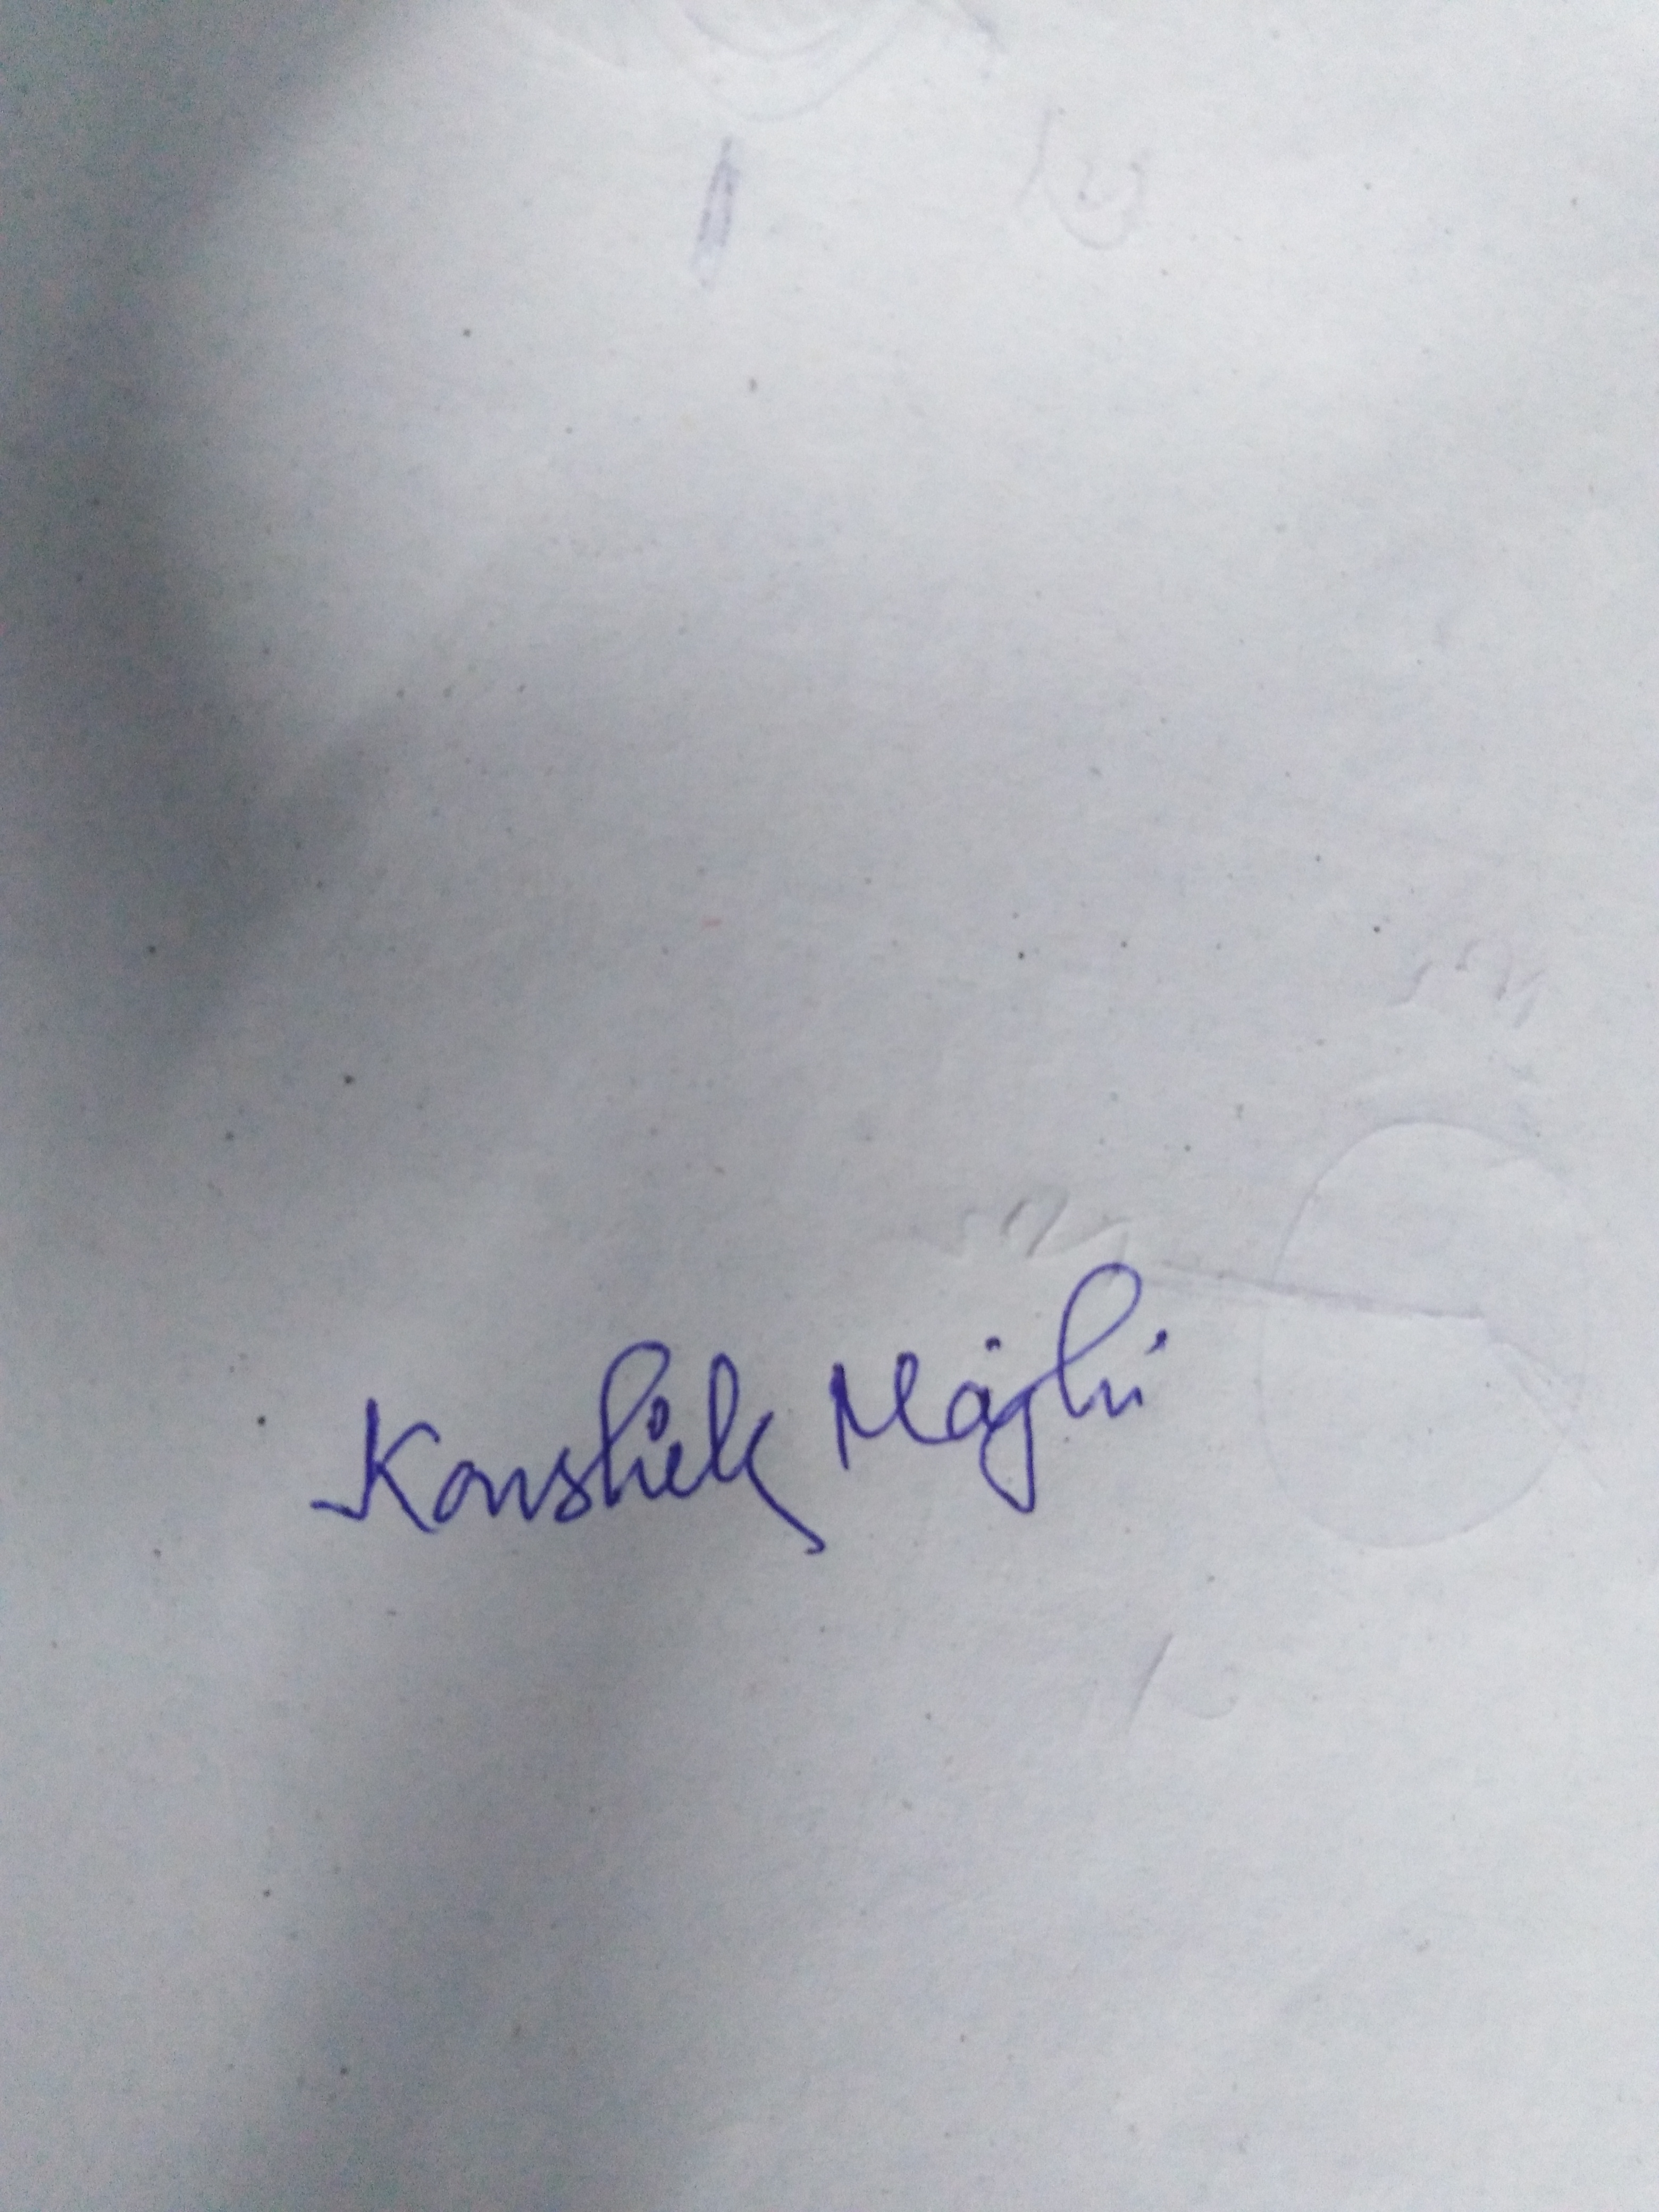 Koushik Majhi